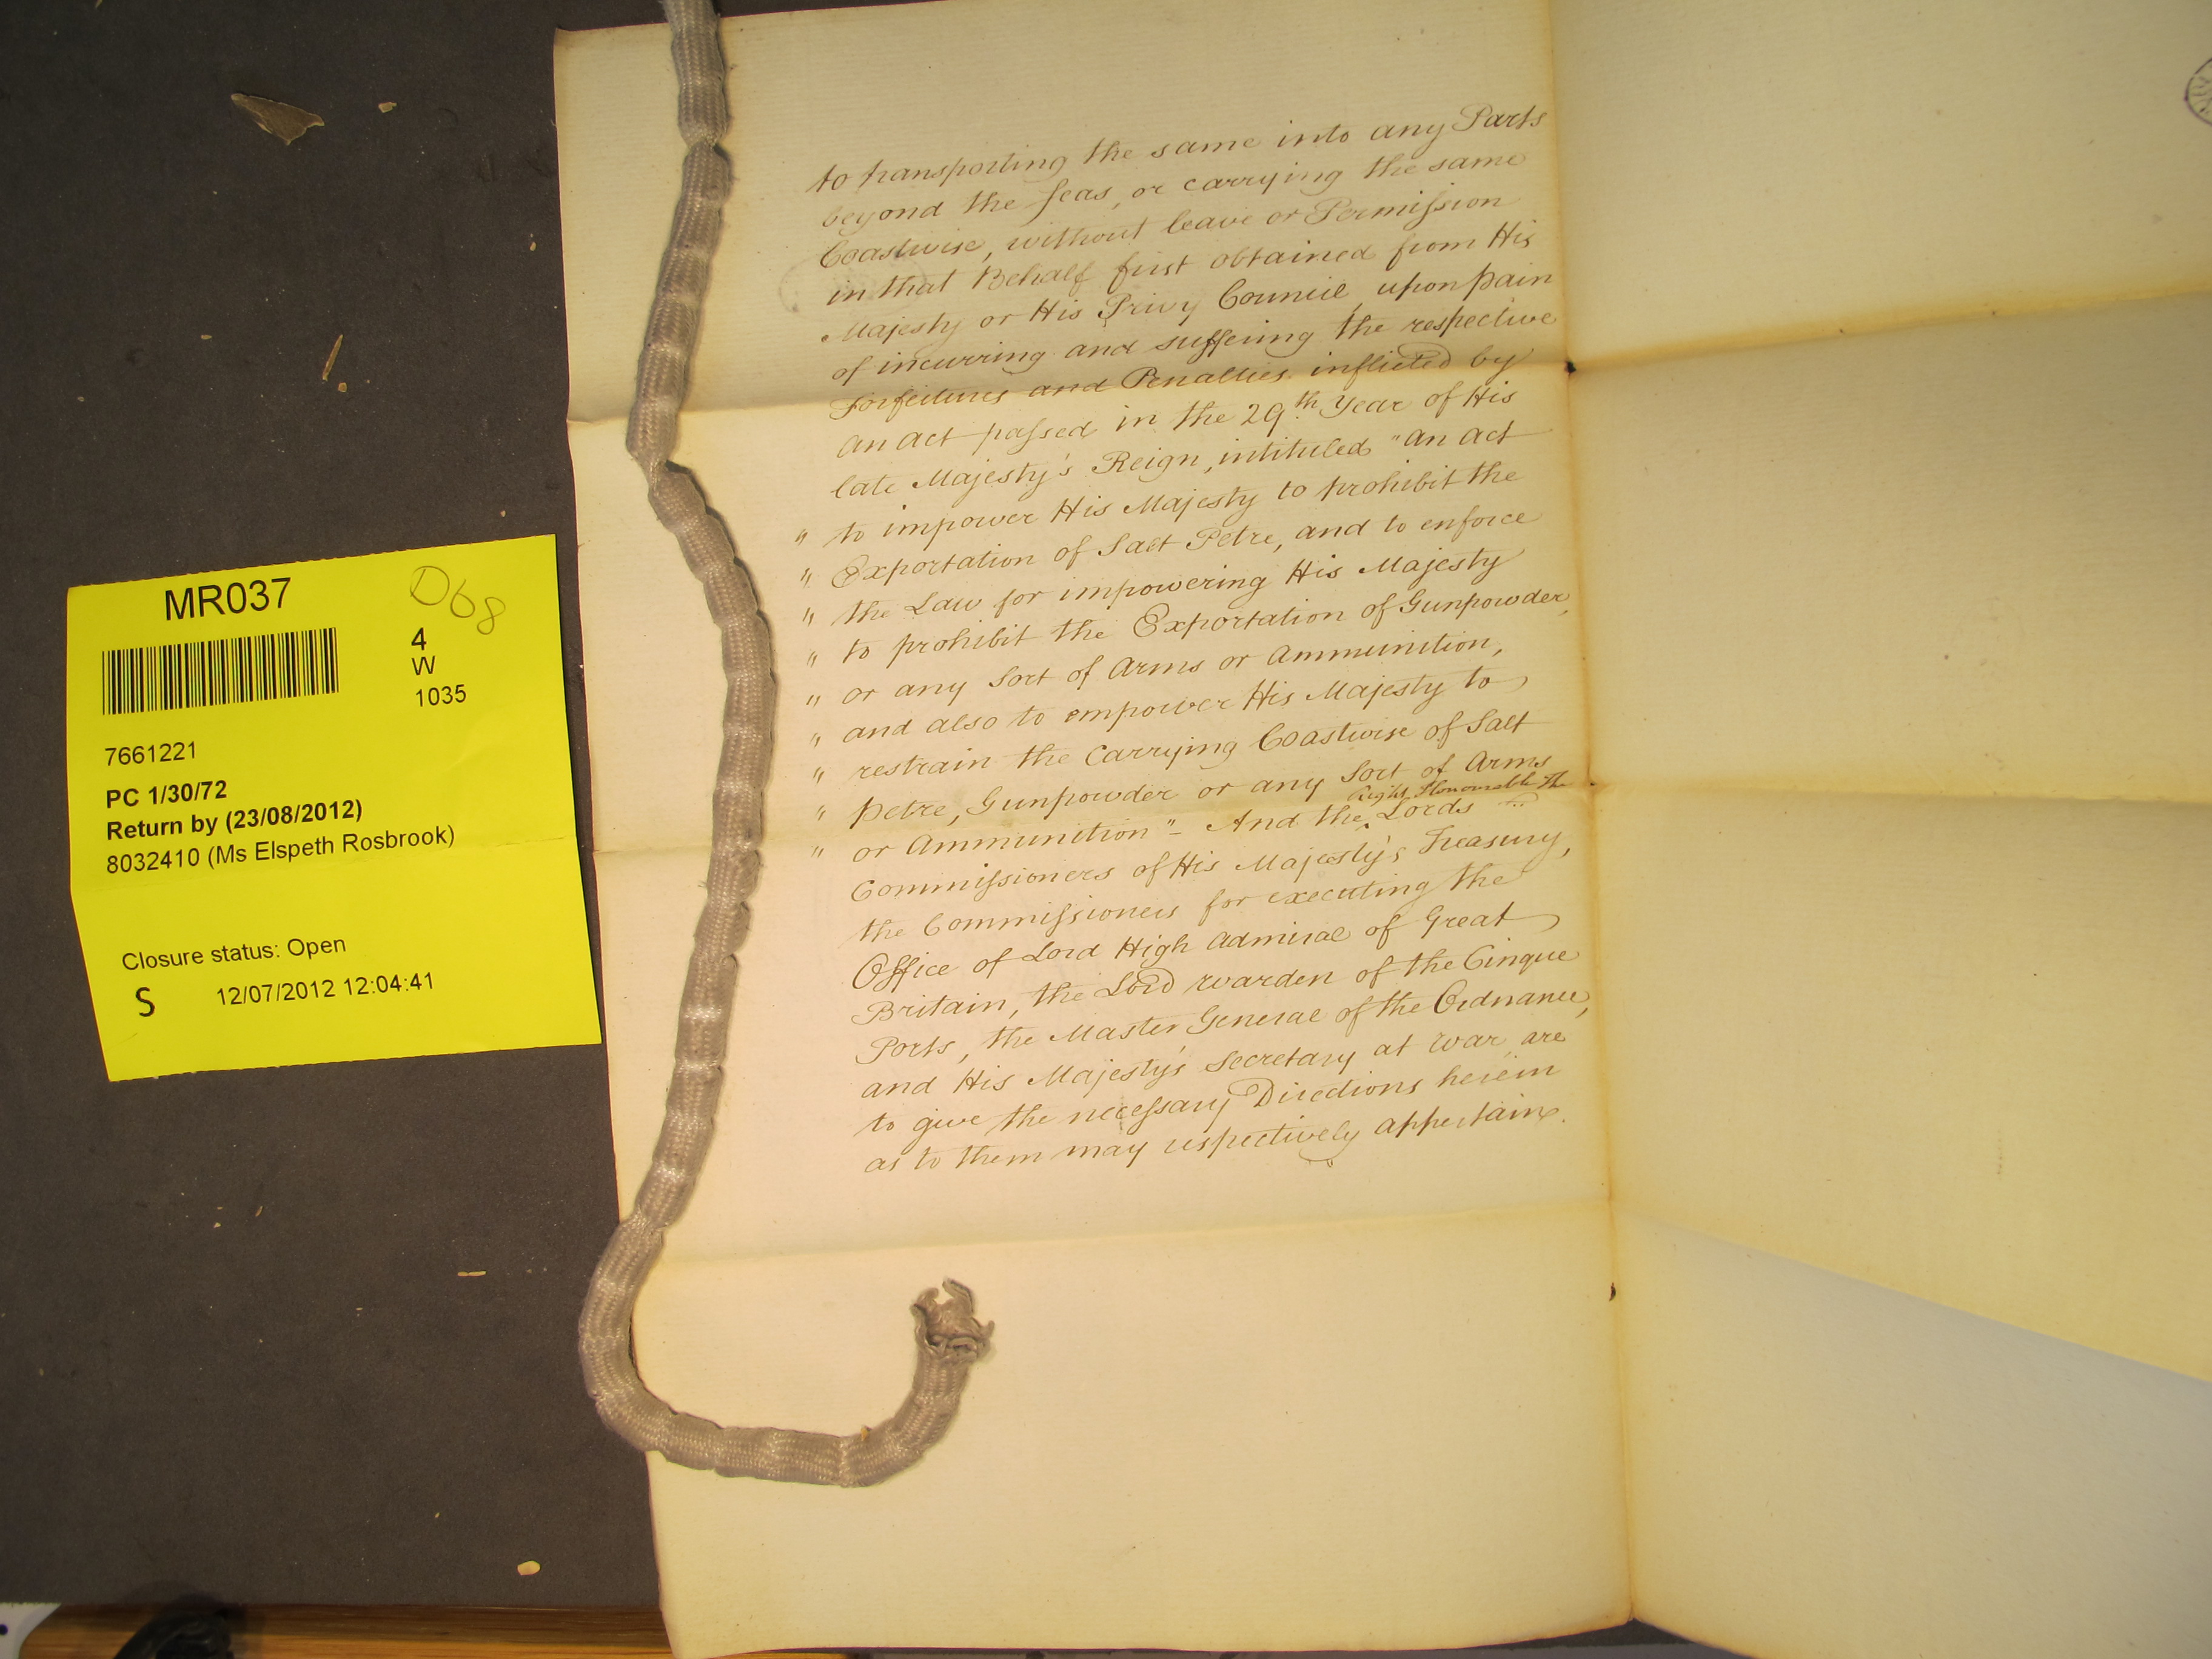 MR037
D68
4
W
1035
7661221
PC 1/30/72
Return by (23/08/2012)
8032410 (Ms Elspeth Rosbrook)
Closure status: Open
S
12/07/2012 12:04:41
to transporting the same into any Parts
beyond the Seas, or carrying the same
Coastwise, without leave or Permission
in that Behalf first obtained from His
Majesty or His Privy Council, upon pain
of incurring and suffering the respective
Forfeitures and Penalties inflicted by
an Act passed in the 29th Year of His
late Majesty's Reign, intituled "An Act
" to impower His Majesty to prohibit the
" Exportation of Salt Petre, and to enforce
" the Law for impowering His Majesty
" to prohibit the Exportation of Gunpowder,
" or any Sort of Arms or Ammunition,
" and also to empower His Majesty to
" restrain the Carrying Coastwise of Salt
" Petre, Gunpowder or any Sort of Arms
" or Ammunition" - And the Right Honourable the Lords
Commissioners of His Majesty's Treasury,
the Commissioners for executing the
Office of Lord High Admiral of Great
Britain, the Lord Warden of the Cinque
Ports, the Master General of the Ordnance,
and His Majesty's Secretary at War, are
to give the necessary Directions herein
as to them may respectively appertain.